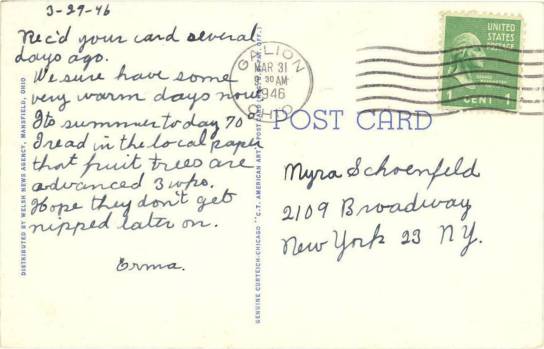 3-29-46
Rec'd your card several
days ago.
We sure have some
very warm days now
Its summer to day 70°
I read in the local paper
that fruit trees are
advanced 3 wks.
Hope they don't get
nipped later on.
Erma.
DISTRIBUTED BY WELSH NEWS AGENCY, MANSFIELD, OHIO
GENUINE CURTEICH-CHICAGO "C.T. AMERICAN ART" POSTCARD
GALION
MAR 31
30 AM
1946
OHIO
UNITED
STATES
POSTAGE
1 CENT 1
POST CARD
Myra Schoenfeld
2109 Broadway
New York 23 N.Y.